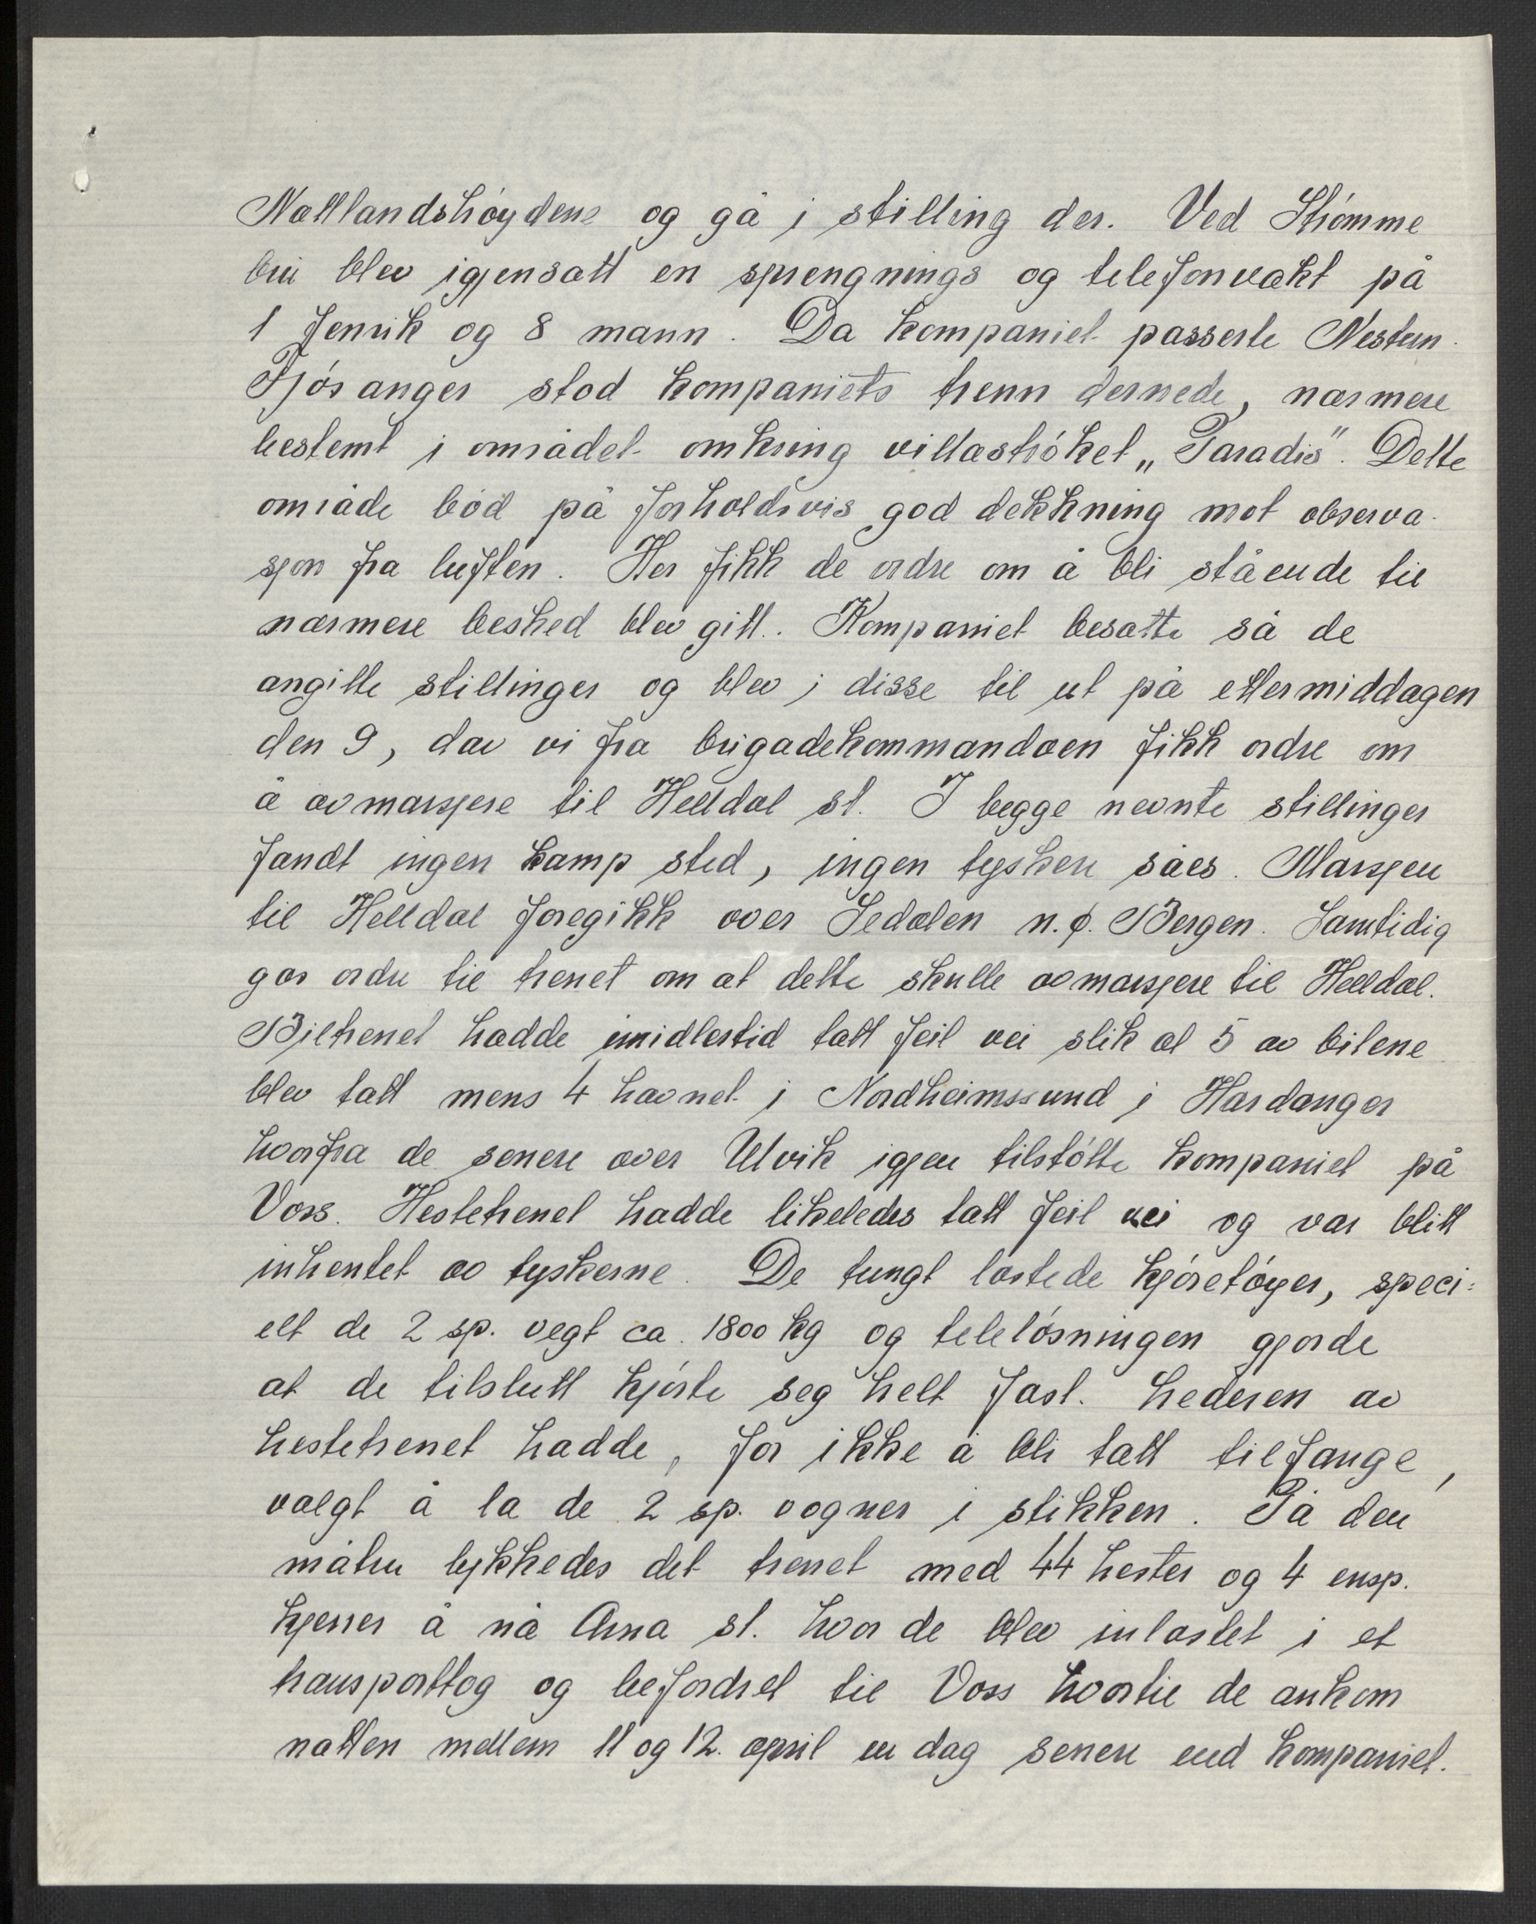 Nattlandshøydene og gå i stilling der. Ved Strømme
bru blev igjensatt en sprengnings og telefonvakt på
1 fenrik og 8 mann. Da kompaniet passerte Nestun-
Fjøsanger stod kompaniets trenn dernede, nærmere
bestemt i området omkring villastrøket „Paradis". Dette
område bød på forholdsvis god dekkning mot observa-
sjon fra luften. Her fikk de ordre om å bli stående til
nærmere besked blev gitt. Kompaniet besatte så de
angitte stillinger og blev i disse til ut på ettermiddagen
den 9, dav vi fra brigadekommandoen fikk ordre om
å avmarsjere til Helldal st. I begge nevnte stillinger
fandt ingen kamp sted, ingen tyskere såes. Marsjen
til Helldal foregikk over Isdalen n.ø. Bergen. Samtidig
gav ordre til trenet om at dette skulle avmarsjere til Helldal.
Biltrenet hadde imidlertid tatt feil vei slik at 5 av bilene
blev tatt mens 4 havnet i Nordheimssund i Hardanger
hvorfra de senere over Ulvik igjen tilstøtte kompaniet på
Voss. Hestetrenet hadde likeledes tatt feil vei og var blitt
inhentet av tyskerne. De tungt lastede kjøretøyer, speci-
elt de 2 sp. vegt ca. 1800 kg og teleløsningen gjorde
at de tilslutt kjørte seg helt fast. Lederen av
hestetrenet hadde, for ikke å bli tatt tilfange,
valgt å la de 2 sp. vogner i stikken. På den
måten lykkedes det trenet med 44 hester og 4 ensp.
kjerrer å nå Arna st. hvor de blev inlastet i et
transporttog og befordret til Voss hvortil de ankom
natten mellem 11 og 12. april en dag senere end kompaniet.